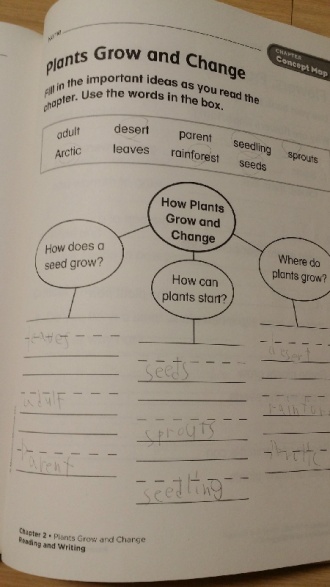 Plants Grow and Change
CHAPTER
Concept Map
Fill in the important ideas as you read the
chapter. Use the words in the box.
adult desert parent seedling sprouts
Arctic leaves rainforest seeds
How Plants
Grow and
Change
How does a
seed grow?
How can
plants start?
Where do
plants grow?
leaves
seeds
adult
sprouts
parent
seedling
Chapter 2 • Plants Grow and Change
Reading and Writing